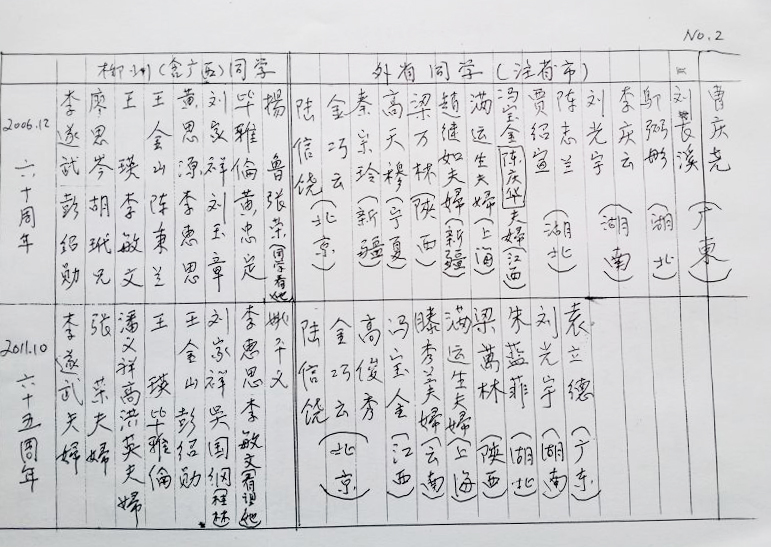 No.2
柳州(含广西)同学
外省同学(注省市)
2006.12 六十周年
李遂武 彭绍勋
廖思岑 胡玳兄
王 瑛 李敏文
王金山 陈秉兰
黄思源 李惠思
刘家祥 刘玉章
毕雅伦 黄忠定
揚 鲁 张荣(同学看她)
陆信饶
金巧云(北京)
秦宗玲(新疆)
高天穆(宁夏)
梁万林(陝西)
趙继如夫婦(新疆)
满运生夫婦(上海)
冯宝金 陈庆华夫婦(江西)
贾绍宣
陈志兰(湖北)
刘光宇
李庆云(湖南)
邬弼彬(湖北)
刘長溪
曹庆尧(广東)
2011.10 六十五周年
李遂武夫婦
张 荣夫婦
潘义祥 高洪英夫婦
王 瑛 毕雅倫
王金山 彭绍勋
刘家祥 吴国纲 程林
李惠思 李敏文(看望她)
姚平文
陆信饶
金巧云(北京)
高俊秀
冯宝金(江西)
滕秀美夫婦(云南)
满运生夫婦(上海)
梁萬林(陝西)
朱蓝菲(湖北)
刘光宇(湖南)
袁立德(广东)